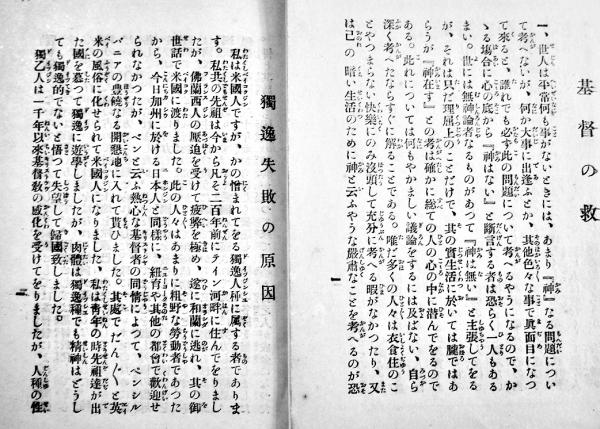 基督の救
一、世人は平常何も事がないときには、あまり『神』なる問題につい
て考へないが、何か大事に出逢ふとか、其他色々な事で眞面目になつ
て來ると、誰れでも必ず此の問題について考へるやうになるので、か
ゝる塲合に心の底から『神はない』と斷言する者は恐らく一人もある
まい。世には無神論者なるものがあつて『神は無い』と主張してをる
が、それは只だ理屈上のことだけで、其の實生活に於いては朧ではあ
らうが『神在す』との考は確かに總ての人の心の中に潜んでをるので
ある。此れについては何もやかましい議論をするには及ばない、自ら
深く考へたならすぐに解ることである。唯だ多くの人々は衣食住のこ
とやつまらない快樂にのみ沒頭して充分に考へる暇がなかつたり、又
は己の暗い生活のために神と云ふやうな嚴肅なことを考へるのが恐
一
獨逸失敗の原因
私は米國人ですが、かの憎まれてをる獨逸人種に屬する者でありま
す。私共の先祖は今から凡そ二百年前にライン河畔に住んでをりまし
たが、佛蘭西人の壓迫を受けて疲弊を極め、遂に和蘭に逃れ、其の御
世話で米國に渡りました。此の人々はあまりに粗野な勞働者であつた
から、今日加州に於ける日本人と同樣に、紐育や其他の都合で歡迎せ
られなかつたが、ペンと云ふ熱心な基督者の同情によつて、ペンシル
バニアの豊饒なる開懇地に入れて貰ひました。其處でだん〱と英
米の風俗に化せられて米國人になりました。私は靑年の時先祖達が出
た國を慕つて獨逸に遊學しましたが、肉體は獨逸種でも精神はどうし
ても獨逸的でないと悟つて失望して歸國致しました。
獨乙人は一千年以來基督敎の感化を受けてをりましたが、人種の性